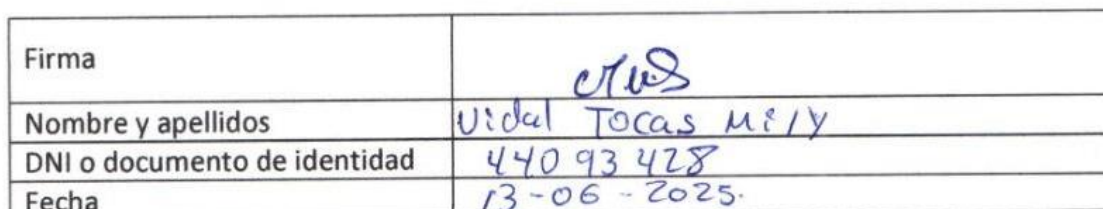 Firma
Nombre y apellidos Vidal Tocas Mily
DNI o documento de identidad 44093428
Fecha 13-06-2025.